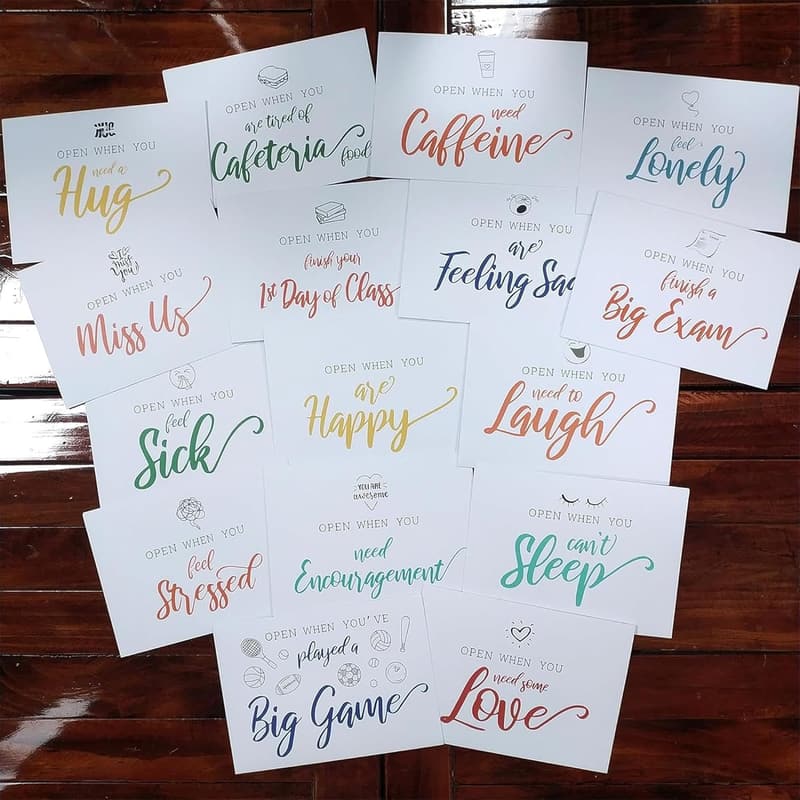 HUG
OPEN WHEN YOU
need a
Hug
OPEN WHEN YOU
are tired of
Cafeteria food
OPEN WHEN YOU
need
Caffeine
OPEN WHEN YOU
feel
Lonely
I
must
you
OPEN WHEN YOU
Miss Us
OPEN WHEN YOU
finish your
1st Day of Class
OPEN WHEN YOU
are
Feeling Sad
OPEN WHEN YOU
finish a
Big Exam
OPEN WHEN YOU
feel
Sick
OPEN WHEN YOU
are
Happy
OPEN WHEN YOU
need to
Laugh
OPEN WHEN YOU
feel
Stressed
YOU ARE
awesome
OPEN WHEN YOU
need
Encouragement
OPEN WHEN YOU
can't
Sleep
OPEN WHEN YOU'VE
played a
Big Game
OPEN WHEN YOU
need some
Love